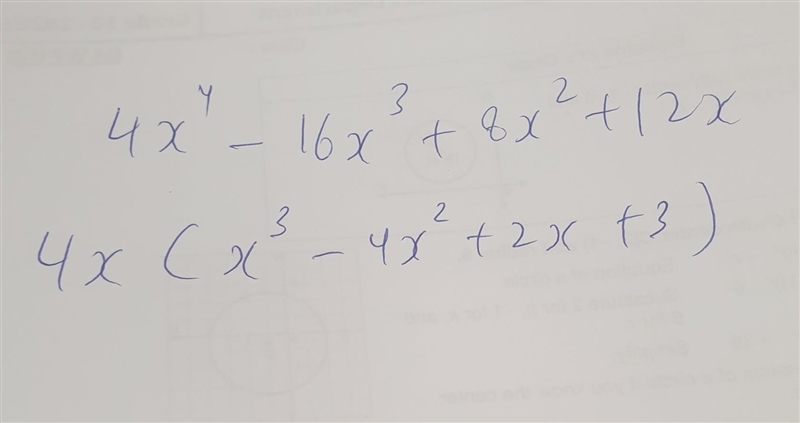 4x⁴ - 16x³ + 8x² + 12x
4x (x³ - 4x² + 2x + 3)